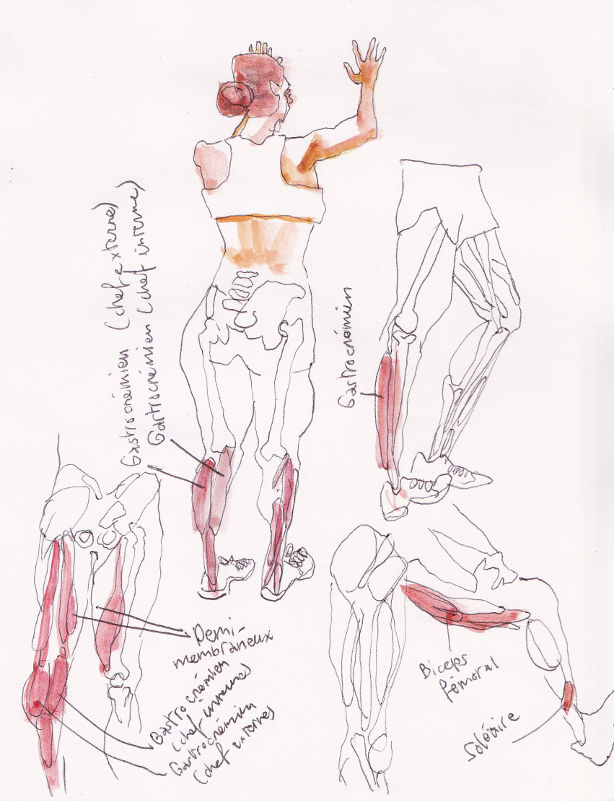 Gastrocnémien (chef externe)
Gastrocnémien (chef interne)
Gastrocnémien
Demi-
membraneux
Gastrocnémien
(chef interne)
Gastrocnémien
(chef externe)
Biceps
fémoral
Soléaire